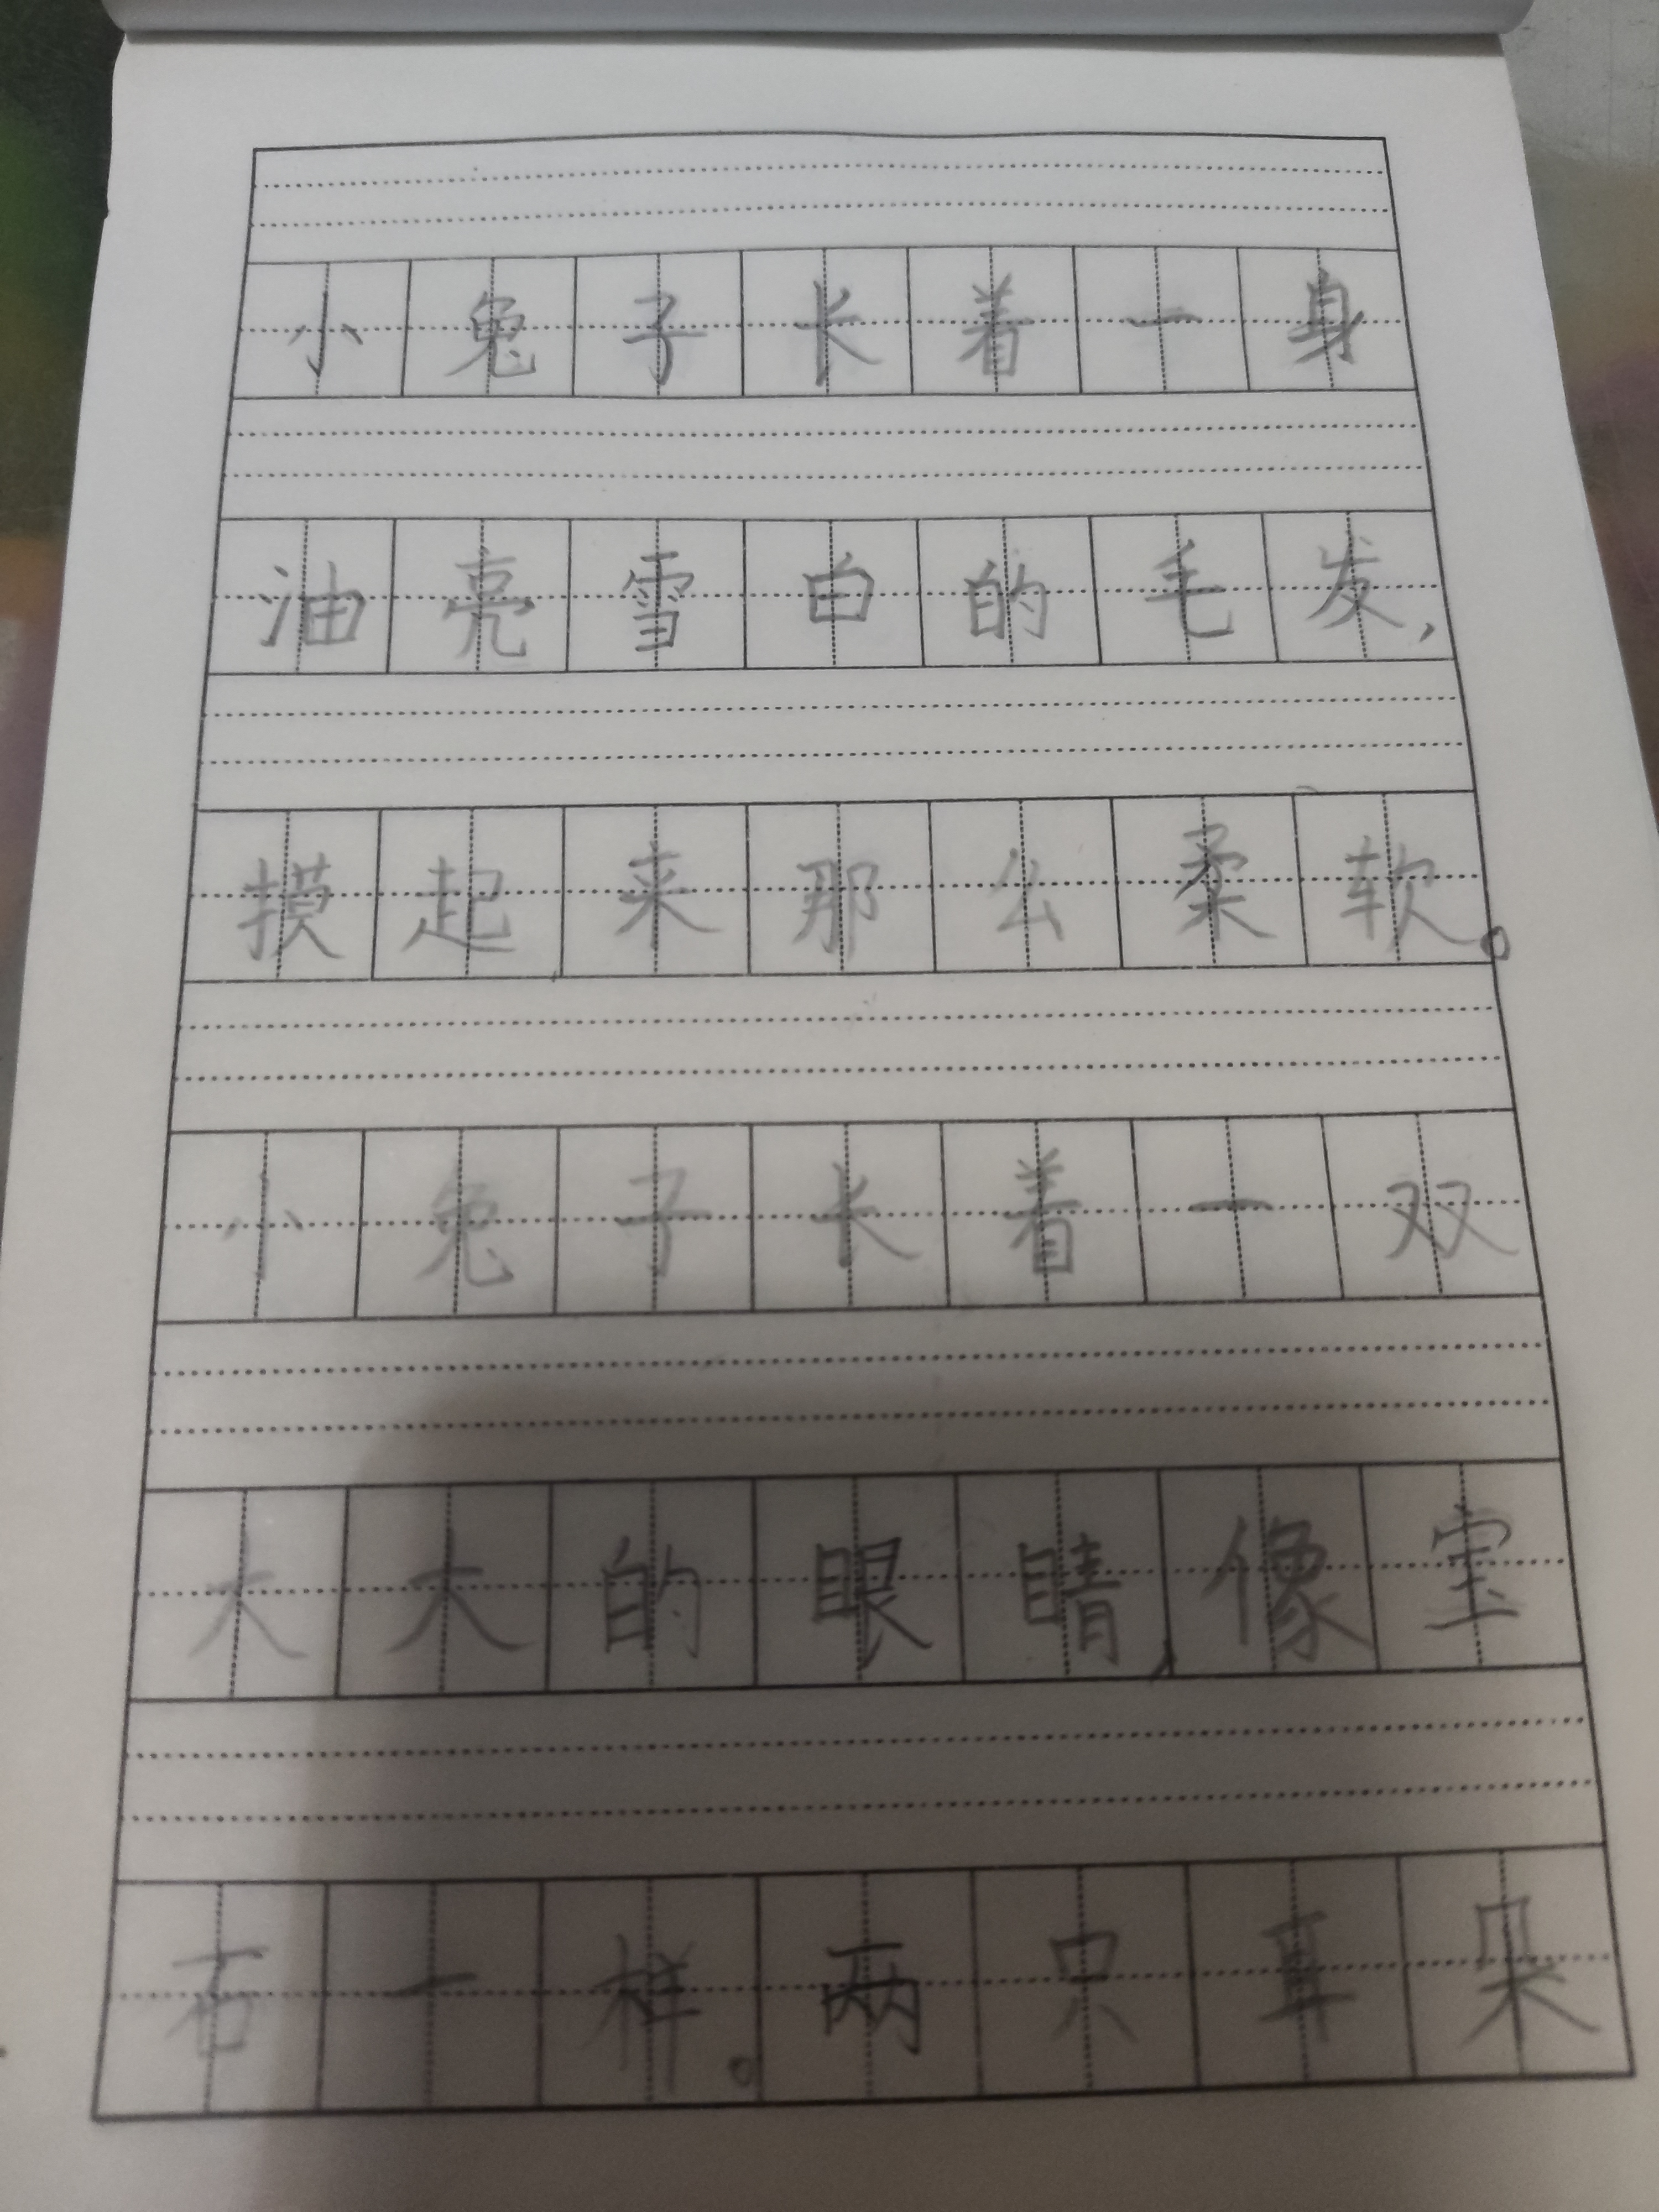 小兔子长着一身
油亮雪白的毛发,
摸起来那么柔软。
小兔子长着一双
大大的眼睛,像宝
石一样。两只耳朵